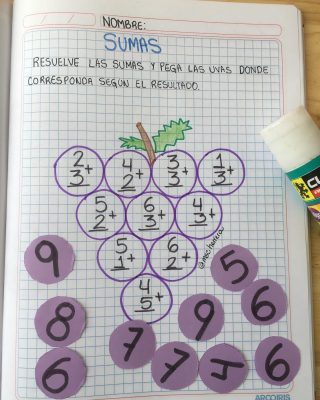 NOMBRE:
SUMAS
RESUELVE LAS SUMAS Y PEGA LAS UVAS DONDE
CORRESPONDA SEGÚN EL RESULTADO.
2 4 3 1
3+ 2+ 3+ 3+
5 6 4
2+ 3+ 3+
5 6
1+ 2+
4
5+
9 5
8 9 6
6 7 7 4 6
ARCOIRIS